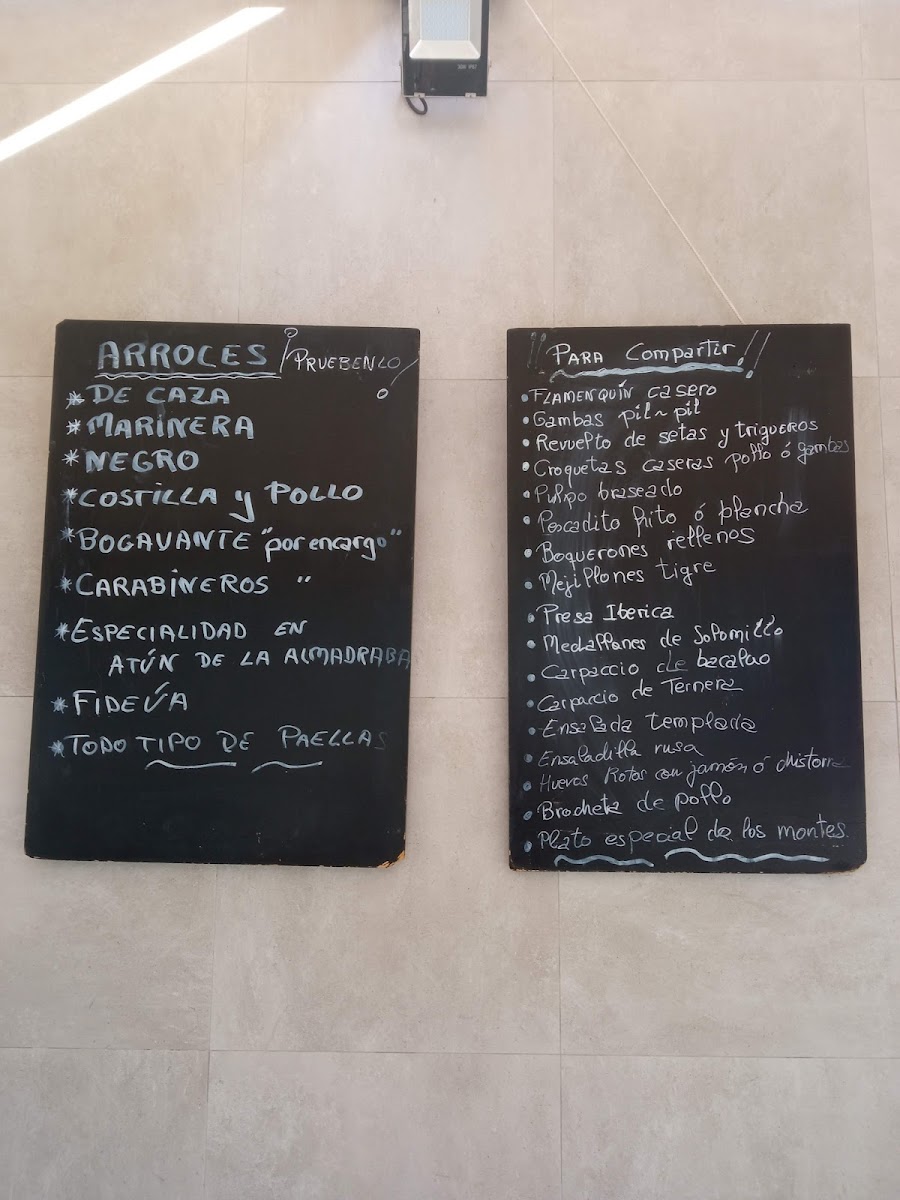 ARROCES ¡PRUEBENLO!
* DE CAZA
* MARINERA
* NEGRO
* COSTILLA y POLLO
* BOGAVANTE "por encargo"
* CARABINEROS "
* ESPECIALIDAD EN
ATÚN DE LA ALMADRABA
* FIDEÚA
* TODO TIPO DE PAELLAS
!! PARA Compartir!!
• FLAMENQUÍN casero
• Gambas pil~pil
• Revuelto de setas y trigueros
• Croquetas caseras pollo ó gambas
• Pulpo braseado
• Pescadito frito ó plancha
• Boquerones rellenos
• Mejillones tigre
• Presa Iberica
• Medallones de Solomillo
• Carpaccio de bacalao
• Carpaccio de Ternera
• Ensalada templada
• Ensaladilla rusa
• Huevos Rotos con jamón ó chistorra
• Brocheta de pollo
• Plato especial de los montes.